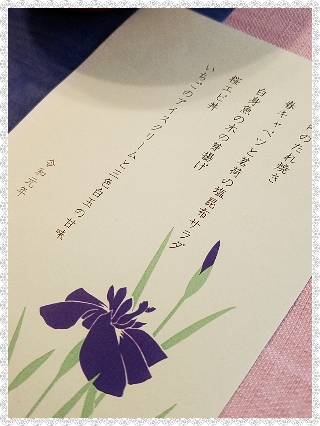 のたれ焼き
春キャベツと茗荷の塩昆布サラダ
白身魚の木の芽揚げ
桜エビ丼
いちごのアイスクリームと三色白玉の甘味
令和元年